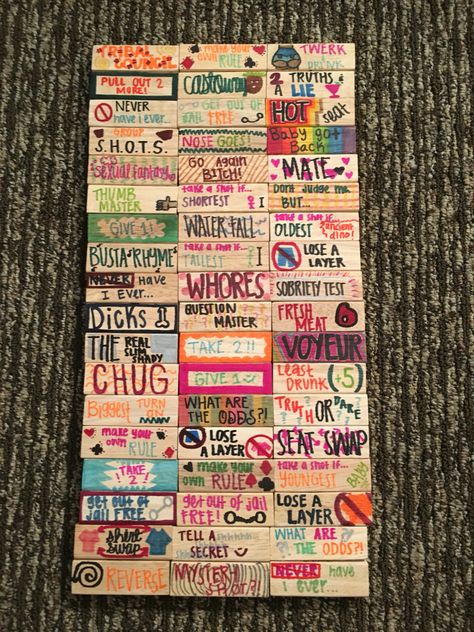 TRIBAL
COUNCIL
make your own
RULE
TWERK
& DRINK
PULL OUT 2
MORE!
castaway
2 TRUTHS &
A LIE
NEVER
have i ever...
GET OUT OF
JAIL FREE
HOT seat
GROUP
S.H.O.T.S.
NOSE GOES
Baby got
Back
sexual fantasy
GO again
BITCH!
MATE
THUMB
MASTER
take a shot if...
SHORTEST
DON'T JUDGE me
BUT...
GIVE 1!
WATERFALL
take a shot if...
OLDEST
ancient
dino!
BUSTA RHYME
take a shot if...
TALLEST
LOSE A
LAYER
NEVER Have
I Ever...
WHORES
SOBRIETY TEST
Dicks
QUESTION
MASTER
FRESH
MEAT
THE REAL
SLIM
SHADY
TAKE 2!!
VOYEUR
CHUG
GIVE 1
Least
DRUNK (+5)
Biggest TURN
ON
WHAT ARE
THE ODDS?!
TRUTH OR DARE
make your
own RULE
LOSE A
LAYER
SEAT SWAP
TAKE
2!
make your
own RULE
take a shot if...
YOUNGEST
BABY
get out of
JAIL FREE!
get out of jail
FREE!
LOSE A
LAYER
shirt
swap
TELL A
SECRET
WHAT ARE
THE ODDS?!
REVERSE
MYSTERY
SHOT?!
NEVER have
i ever...